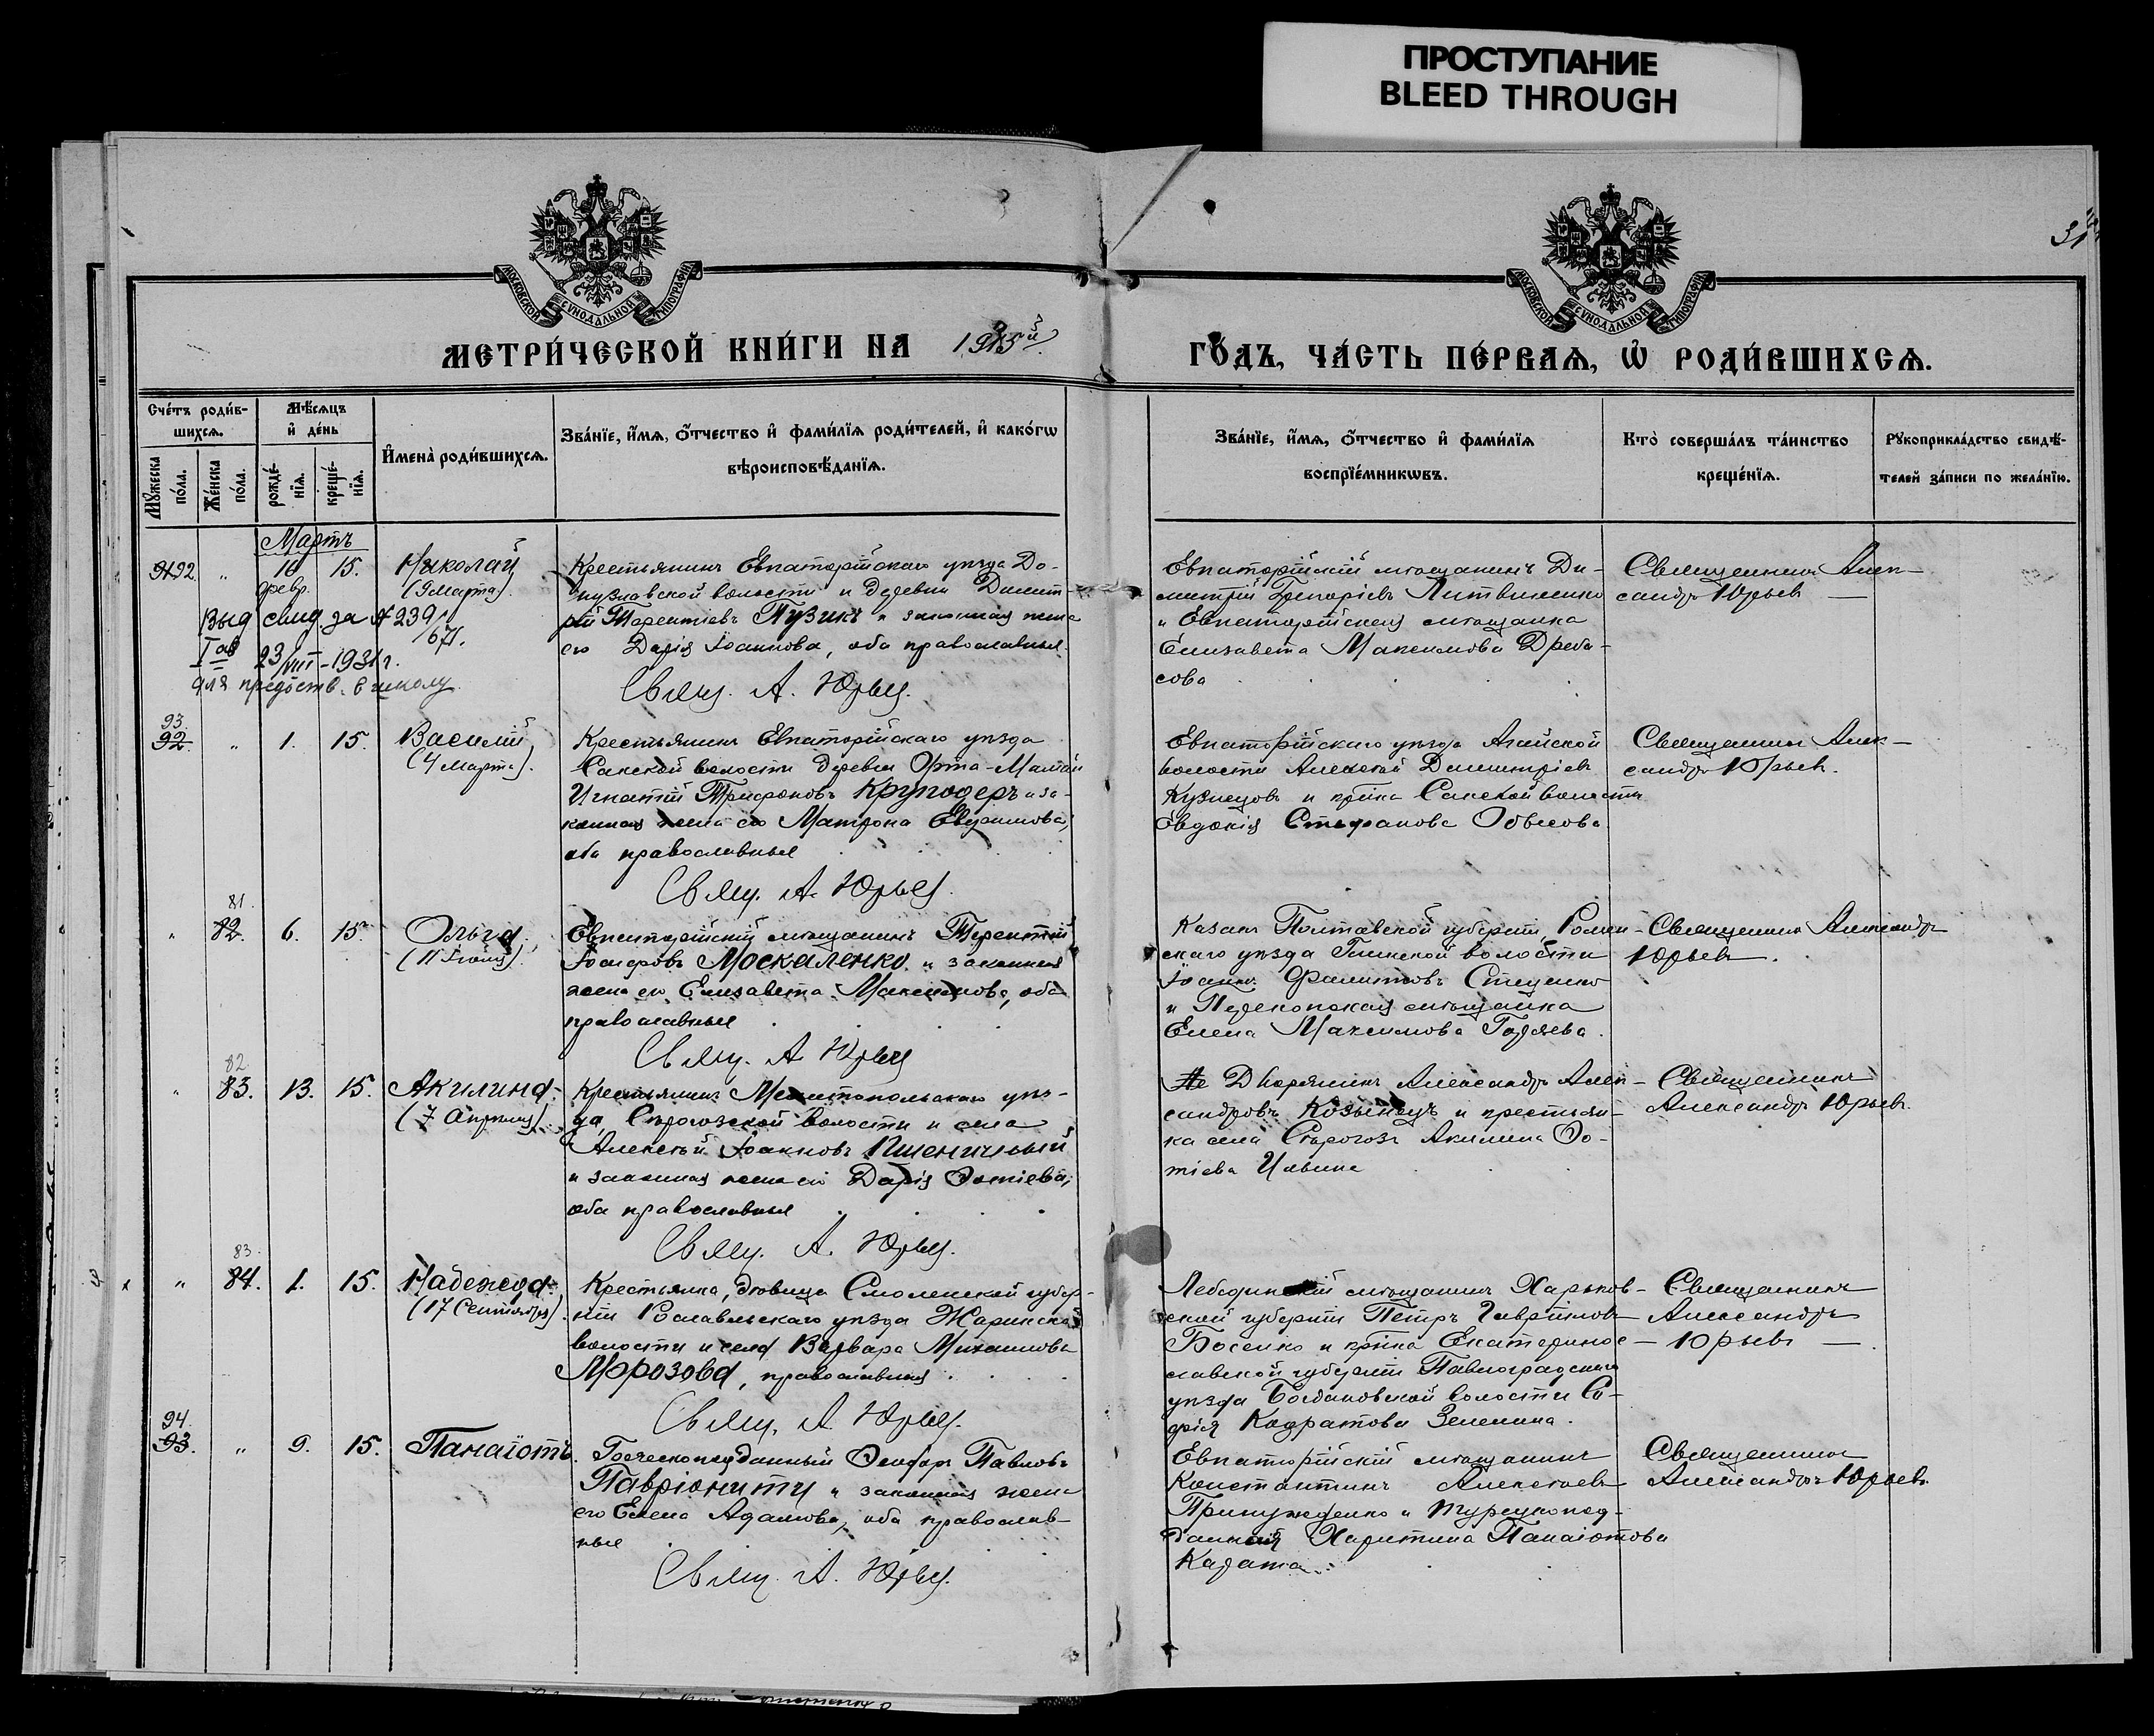 ПРОСТУПАНИЕ
BLEED THROUGH
МОСКОВСКОЙ СѴНОДАЛЬНОЙ ТИПОГРАФІИ
МОСКОВСКОЙ СѴНОДАЛЬНОЙ ТИПОГРАФІИ
31
МЕТРИ́ЧЕСКОЙ КНИ́ГИ НА 1915й
ГО́ДЪ, ЧА́СТЬ ПЕ́РВАѦ, Ѡ҆ РОДИ́ВШИХСѦ.
Сче́тъ роди́в-
шихсѧ.
Мꙋ́жеска по́ла.
Же́нска по́ла.
Мѣ́сѧцъ
и҆ де́нь
рожде́-
нїѧ.
креще́-
нїѧ.
И҆мена̀ роди́вшихсѧ.
Зва́нїе, и҆́мѧ, ѻ҆́тчество и҆ фами́лїѧ роди́телей, и҆ како́гѡ
вѣроисповѣ́данїѧ.
Зва́нїе, и҆́мѧ, ѻ҆́тчество и҆ фами́лїѧ
воспрїе́мникѡвъ.
Кто̀ соверша́лъ та́инство
креще́нїѧ.
Рꙋкоприкла́дство свидѣ́-
телей за́писи по жела́нїю.
Мартъ
92. „ 16 февр. 15. Николай
(9 марта).
Выд свид. за № 239/671.
23/VIII-1931г.
для предоств. в школу
Крестьянинъ Евпаторійскаго уѣзда До-
нузлавской волости и деревни Димит-
рій Терентіевъ Пузикъ и законная жена
его Дарія Іоаннова, оба православные
Свящ. А. Юрьев.
Евпаторійскій мѣщанинъ Ди-
митрій Григоріевъ Литвиненко
и Евпаторійская мѣщанка
Елизавета Максимова Дреба-
сова
Священникъ Алек-
сандръ Юрьевъ
93.
92. „ 1. 15. Василій
(4 марта).
Крестьянинъ Евпаторійскаго уѣзда
Сакской волости деревни Орта-Мамай
Игнатій Трифоновъ Круподеръ и за-
конная жена его Матрона Евфимова,
оба православные
Свящ. А. Юрьев.
Евпаторійскаго уѣзда Агайской
волости Алексѣй Димитріевъ
Кузнецовъ и кр-ка Сакской волости
Евдокія Стефанова
Священникъ Алек-
сандръ Юрьевъ.
81.
„ 82. 6. 15. Ольга.
(11 Іюля).
Евпаторійскій мѣщанинъ Терентій
Іосифовъ Москаленко и законная
жена его Елизавета Максимова, оба
православные
Свящ. А. Юрьев
Казакъ Полтавской губерніи Ромен-
скаго уѣзда Глинской волости
Іоаннъ Филипповъ Стеценко
и Перекопская мѣщанка
Елена Максимова
Священникъ Александръ
Юрьевъ.
82
„ 83. 13. 15. Акилина.
(7 Апрѣля).
Крестьянинъ Мелитопольскаго уѣз-
да Сѣрогозской волости и села
Алексѣй Іоанновъ Пшеничный
и законная жена его Дарія Фотіева,
оба православные
Свящ. А. Юрьев.
Дворянинъ Александръ Алек-
сандровъ Козынецъ и крестьян-
ка села Сѣрогозъ Акилина Фо-
тіева Ильина
Священникъ
Александръ Юрьевъ.
83.
„ 84. 1. 15. Надежда.
(17 Сентября).
Крестьянка, вдовица Смоленской губер-
ніи Рославльскаго уѣзда Жаринской
волости и села Варвара Михаилова
Морозова, православная
Свящ. А. Юрьев.
Лебединскій мѣщанинъ Харьков-
ской губерніи Петръ Гавріиловъ
Босенко и кр-ка Екатеринос-
лавской губерніи Павлоградскаго
уѣзда Богдановской волости Со-
фія Кодратова Зеленина.
Священникъ
Александръ
Юрьевъ
94.
93. „ 9. 15. Панаіотъ.
Греческоподданный Ѳеодоръ Павловъ
Павріониту и законная жена
его Елена Адамова, оба православ-
ные
Свящ. А. Юрьев.
Евпаторійскій мѣщанинъ
Константинъ Алексѣевъ
Принужденко и турецкопод-
данная Харитина Панаіотова
Карата.
Священникъ
Александръ Юрьевъ.